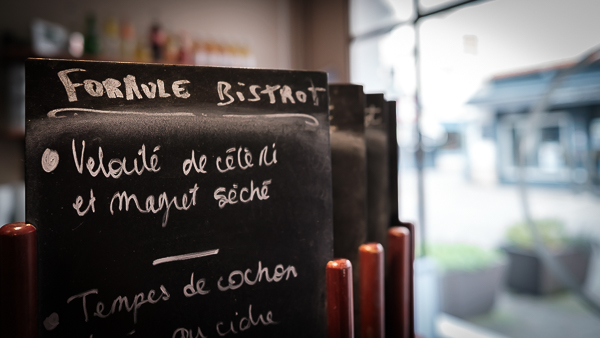 FORMULE BISTROT
Velouté de céleri
et magret séché
Tempes de cochon
au cidre